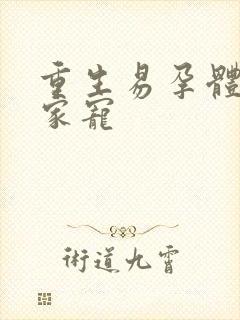 重生易孕體
家寵
術道九霄